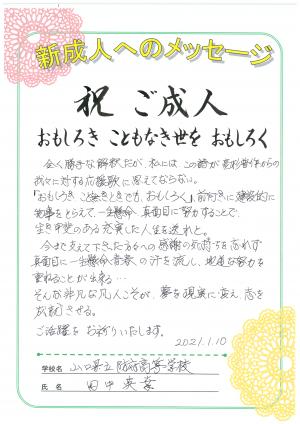 新成人へのメッセージ
祝 ご成人
おもしろき こともなき世を おもしろく
全く勝手な解釈だが、私には この詩が 晋作からの
我々に対する応援歌に思えてならない。
「おもしろく」前向きに 建設的に
物事をとらえて、一生懸命、真面目に努力することで、
生き甲斐のある充実した人生を送れと。
今まで支えて下さった方々への感謝の気持ちを忘れず
真面目に一生懸命 青春の汗を流し、地道な努力を
重ねることが出来る…
そんな非凡な凡人こそが、夢を現実に変え、志を
させる。
ご活躍を お祈りいたします。
2021.1.10
学校名 山口県立防府高等学校
氏 名 田中